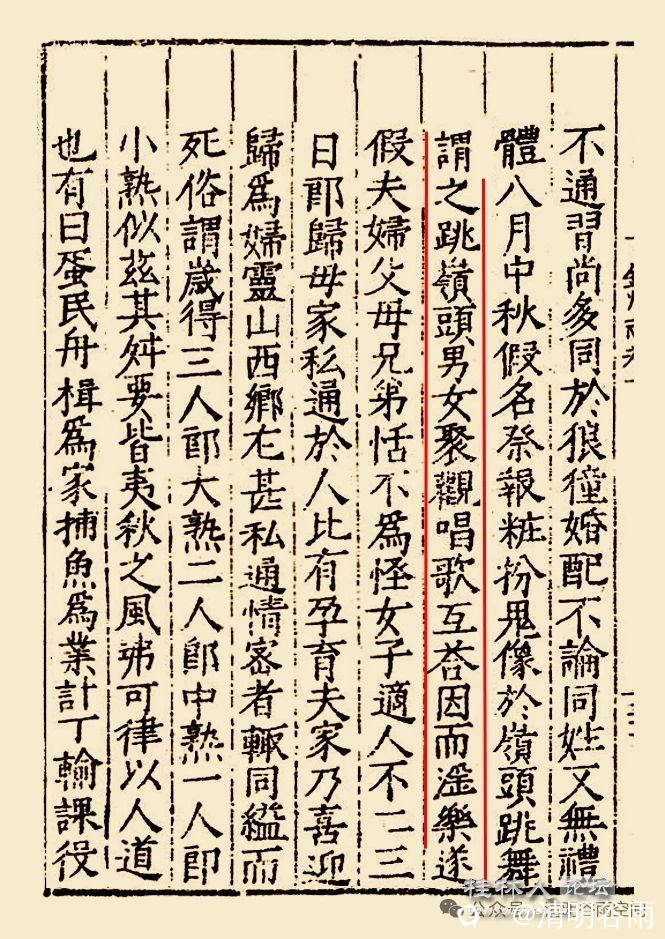 不通習尚多同於狼獞婚配不論同姓又無禮
體八月中秋假名祭報粧扮鬼像於嶺頭跳舞
謂之跳嶺頭男女聚觀唱歌互荅因而滛樂遂
假夫婦父母兄弟恬不爲怪女子適人不二三
日郎歸母家私通於人比有孕育夫家乃喜迎
歸爲婦靈山西鄉尤甚私通情密者輙同縊而
死俗謂歲得三人郎大熟二人郎中熟一人郎
小熟似兹其舛要皆夷狄之風弗可律以人道
也有曰蜑民舟楫爲家捕魚爲業計丁輸課役
桂林人论坛
公众号
@清明谷雨